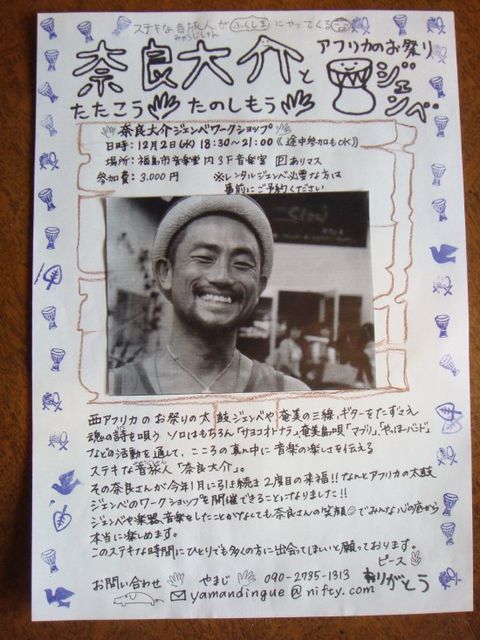 ステキな音旅人がふくしまにやってくる
みゅーじしゃん
奈良大介と
アフリカのお祭り
ジェンベ
たたこう たのしもう
奈良大介ジェンベワークショップ
日時：12月2日(水) 18:30〜21:00《途中参加もOK》
場所：福島市音楽堂内3F音楽室 Pありマス
参加費：3,000円 ※レンタルジェンベ必要な方は
事前にご予約ください
西アフリカのお祭りの太鼓ジェンベや奄美の三線、ギターをたずさえ
魂の詩を唄う ソロはもちろん「サヨコオトナラ」奄美島唄「マブリ」、「やっほーバンド」
などの活動を通して、こころの真ん中に音楽の楽しさを伝える
ステキな音旅人「奈良大介」。
その奈良さんが今年1月に引き続き2度目の来福!!なんとアフリカの太鼓
ジェンベのワークショップを開催できることになりました!!
ジェンベや楽器、音楽をしたことがなくても奈良さんの笑顔でみんな心の底から
本当に楽しめます。
このステキな時間にひとりでも多くの方に出会ってほしいと願っております。
ピース
お問い合わせ やまじ 090-2735-1313 ありがとう
yamandingue@nifty.com